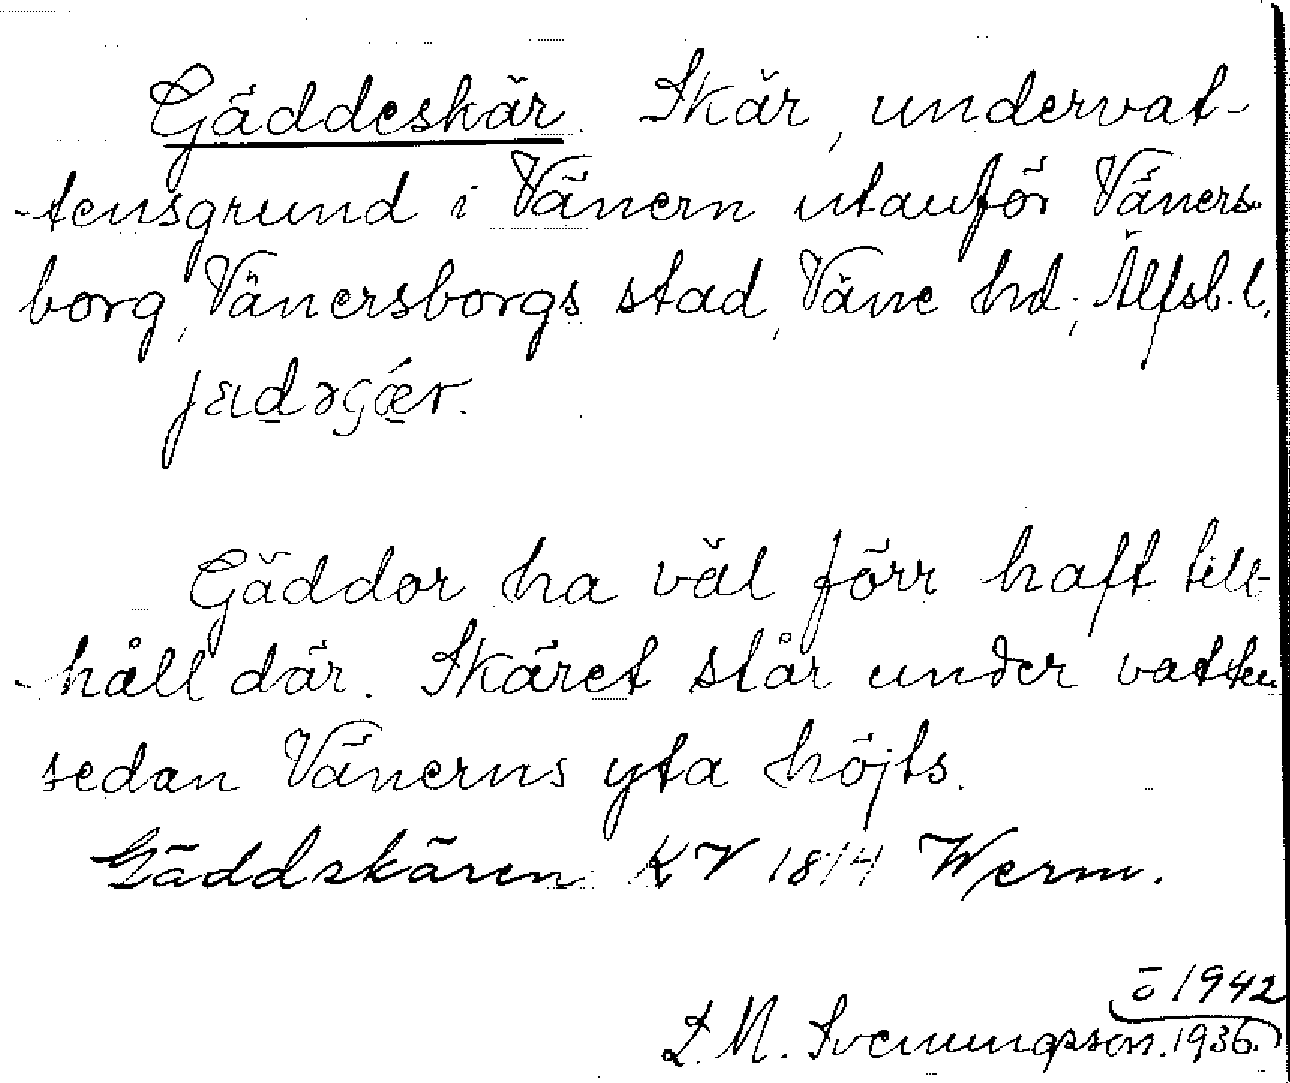 Gäddeskär. Skär, undervat-
-tensgrund i Vänern utanför Väners-
borg, Vänersborgs stad, Väne hd, Älfsb. l.

Gäddor ha väl förr haft till-
-håll där. Skäret står under vatten
sedan Vänerns yta höjts.
Gäddskären KV 1814 Werm.
ö 1942
L. M. Svenungsson. 1936.